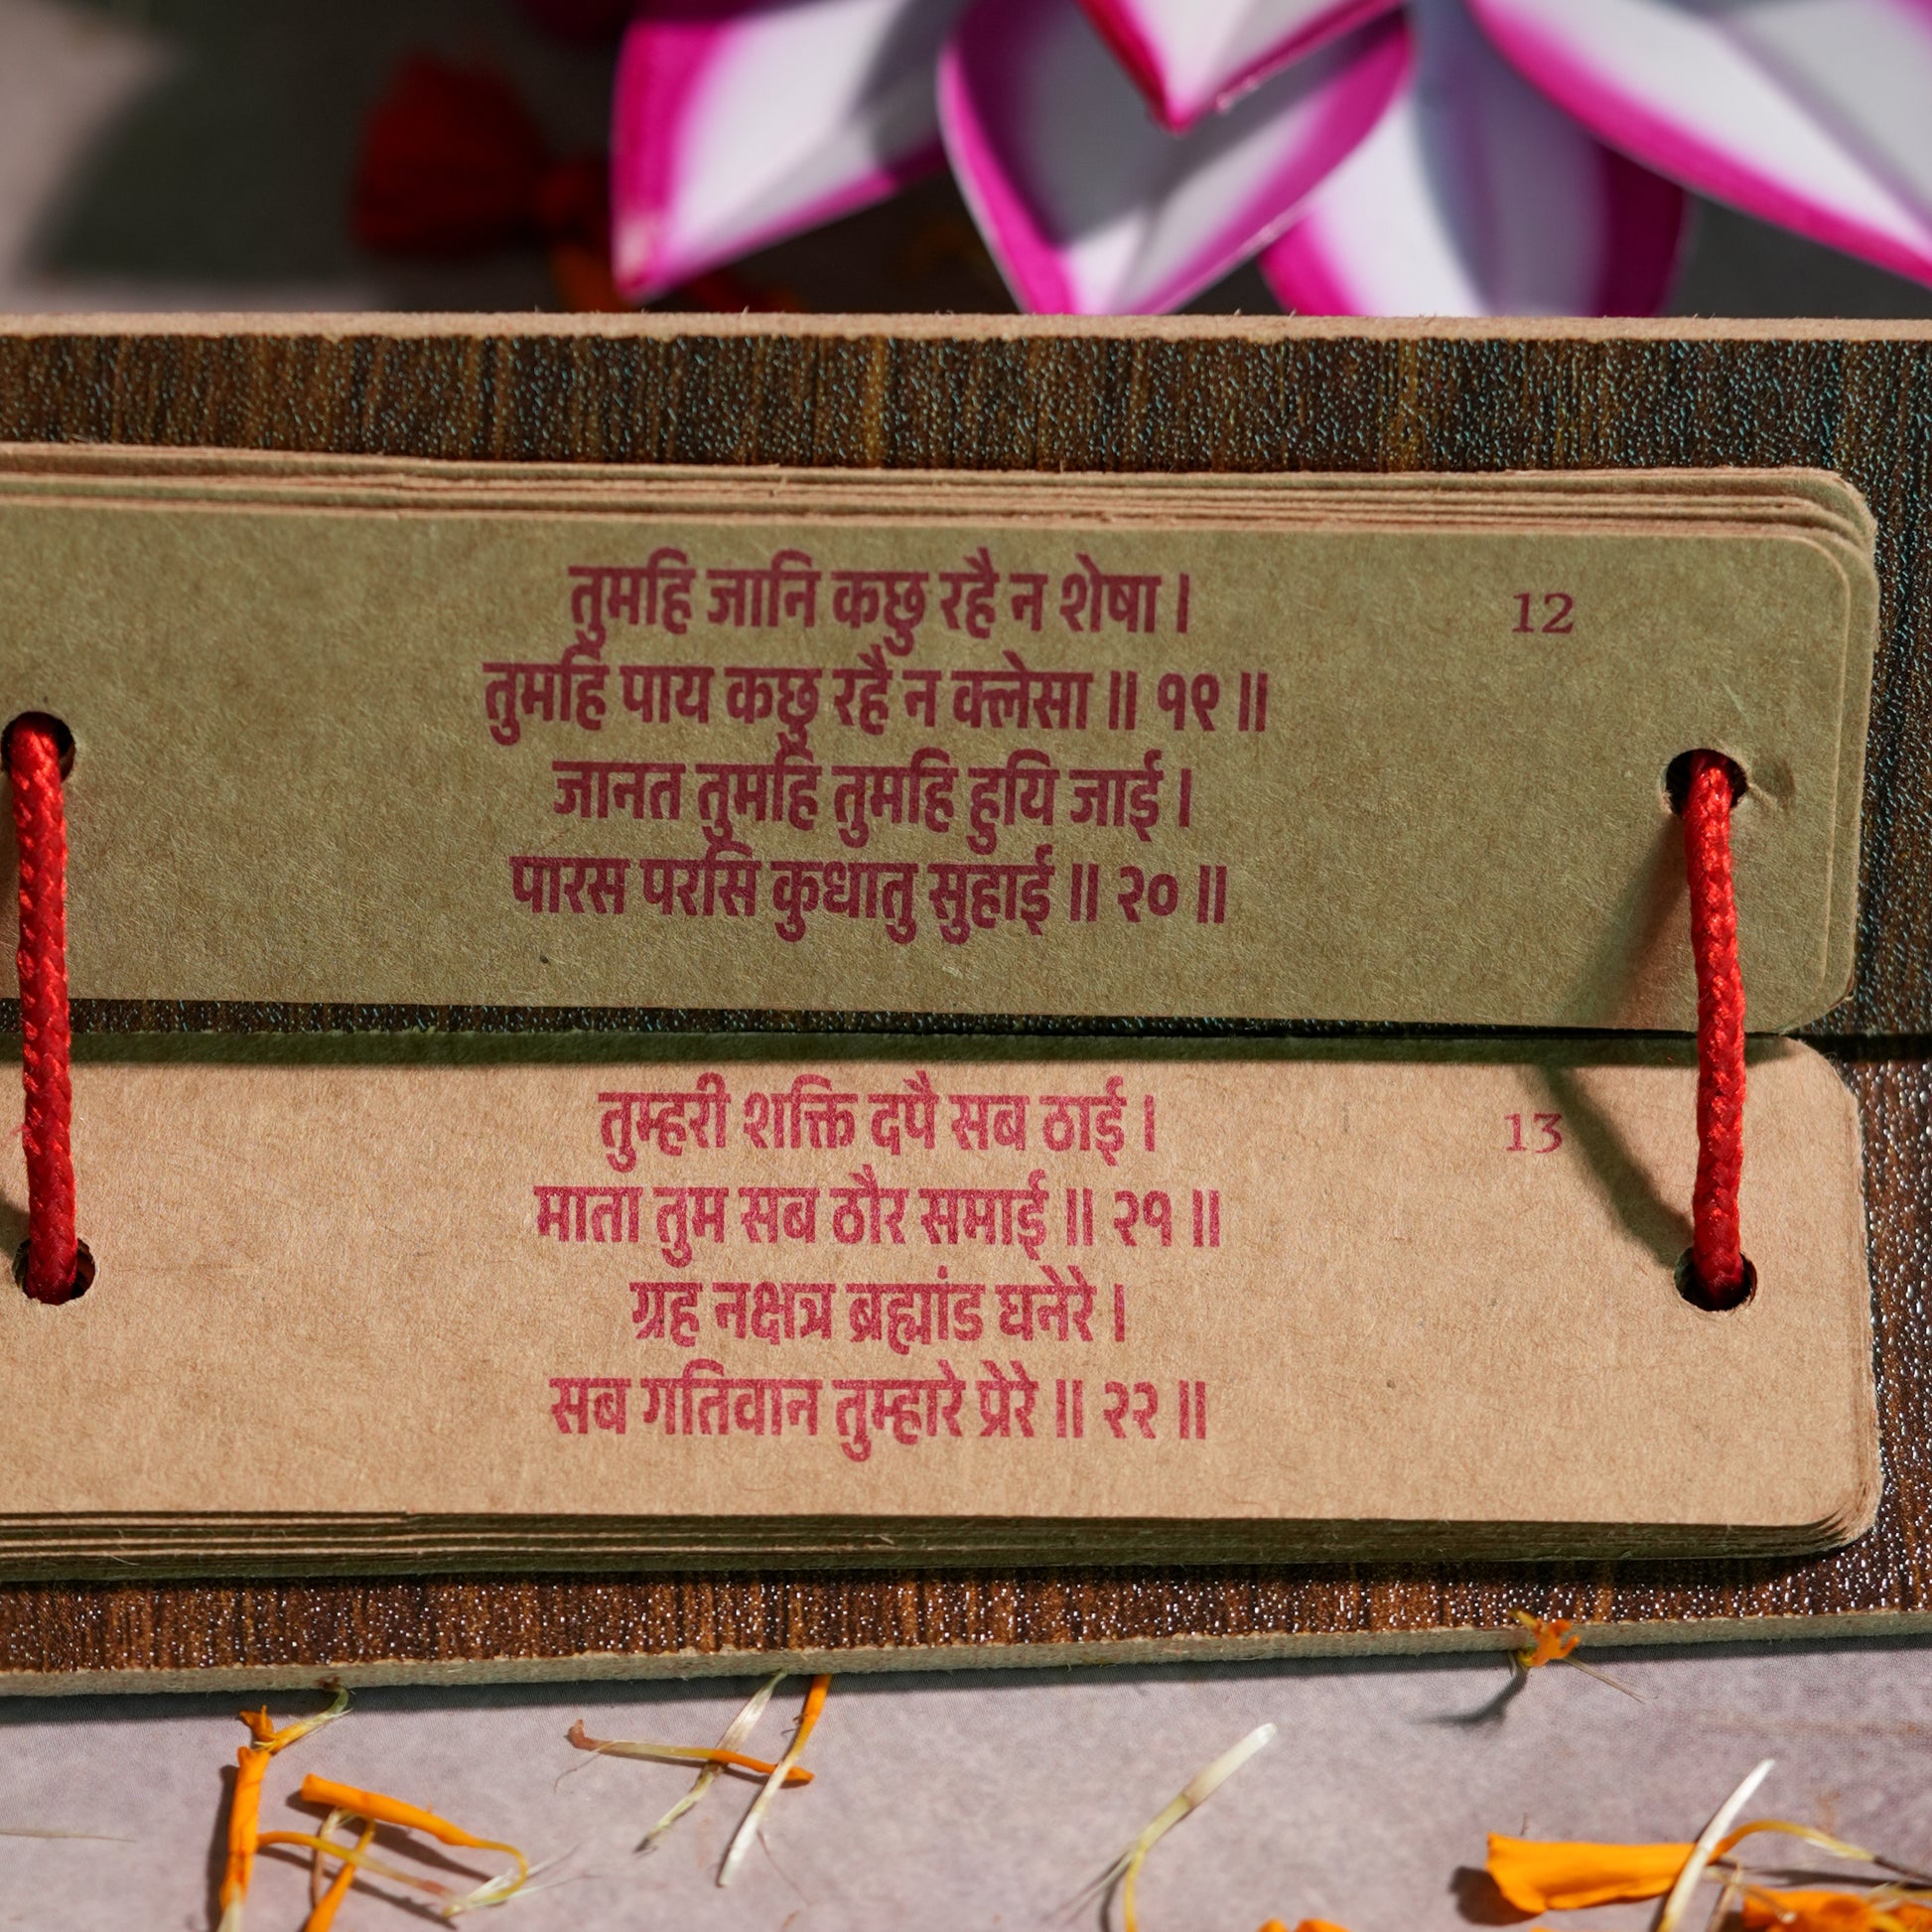 तुमहि जानि कछु रहै न शेषा ।
12
तुमहि पाय कछु रहै न क्लेसा ॥ १९ ॥
जानत तुमहि तुमहि हुयि जाई ।
पारस परसि कुधातु सुहाई ॥ २० ॥
तुम्हरी शक्ति दपै सब ठाई ।
13
माता तुम सब ठौर समाई ॥ २१ ॥
ग्रह नक्षत्र ब्रह्मांड घनेरे ।
सब गतिवान तुम्हारे प्रेरे ॥ २२ ॥